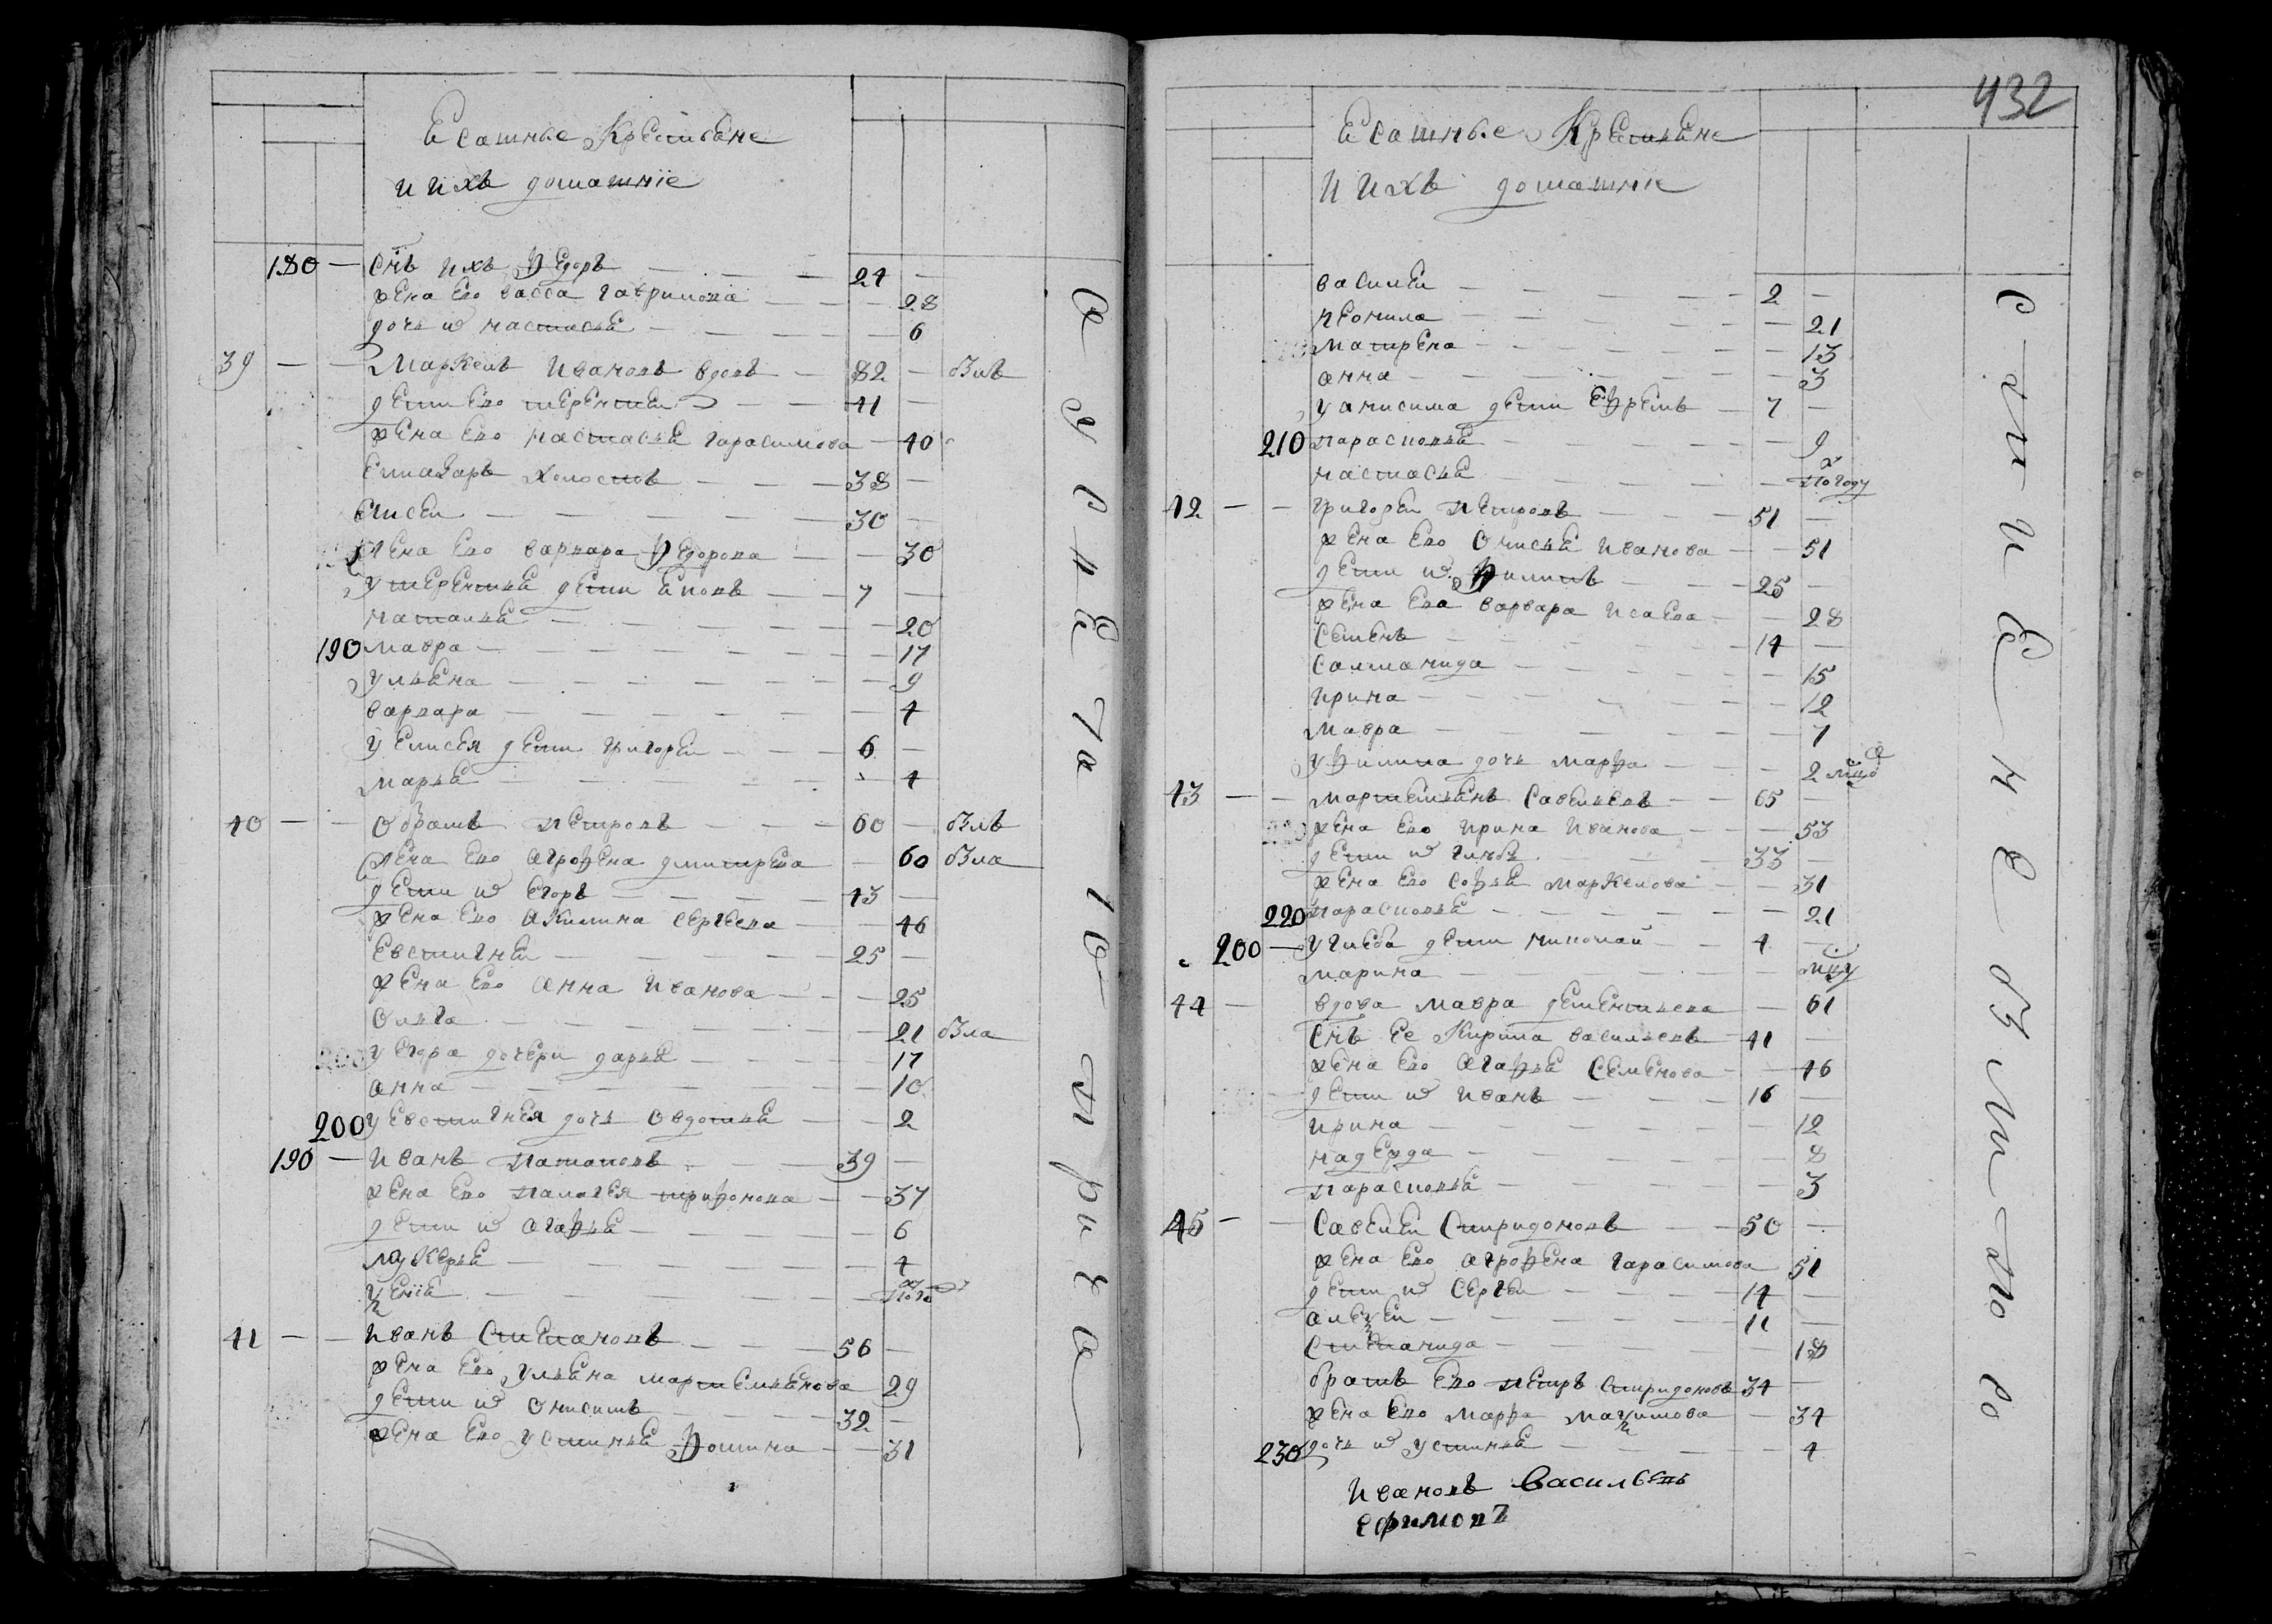 Есашные Крестьяне
и ихъ домашніе
180 — снъ ихъ Ѳедоръ — 24 —
жена ево васса гаврилова — 28
дочь ѿ настасья — 6
39 — — Маркелъ Ивановъ вдовъ — 82 — былъ
дети ево терентеи — 41 —
жена ево настасья гарасимова — 40
елиазаръ холостъ — 38 —
елисеи — 30 —
жена ево варвара Ѳедорова — 30
у терентья дети 7 —
наталья — 20
190 мавра — 17
ульяна — 9
варвара — 4
у елисея дети григореи — 6 —
марья — 4
40 — — петровъ — 60 — былъ
жена ево агрофена дмитрева — 60 была
дети ѿ егоръ — 43 —
жена ево акилина сергеева — 46
евстигней — 25 —
жена ево анна Иванова — 25
олга — 21 была
у егора дочери дарья — 17
анна — 10
200 у евстигнея дочь овдотья — 2
190 — Иванъ патаповъ — 39 —
жена ево палагея трифонова — 37
дети ѿ агафья — 6
лукерья — 4
41 — — Иванъ Степановъ — 56 —
жена ево ульяна мартемьянова 29
дети ѿ онисимъ — 32 —
жена ево устинья Фомина — 31
а у с п Е н а го п р и х о
432
Есашные Крестьяне
и ихъ домашніе
василеи — 2 —
неонила — 21
матрена — 13
анна — 3
у анисима дети Ефремъ — 7 —
210 парасковья — 9
настасья — погоду
42 — — григореи петровъ — 51 —
жена ево онисья иванова — 51
дети ѿ Филипъ — 25 —
жена ево варвара исаева — 28
семенъ — 14 —
саломанида — 15
ирина — 12
мавра — 7
у филипа дочь марфа — 2
43 — — мартемьянъ савельевъ — 65 —
жена ево ирина иванова — 53
дети ѿ глебъ — 33 —
жена ево софья маркелова — 31
220 парасковья — 21
200 — у глеба дети николай — 4 —
марина —
44 — вдова мавра деменьтьева — 61
снъ ее Кирила васильевъ — 41 —
жена ево агафья семенова — 46
дети ѿ иванъ — 16 —
ирина — 12
надежда — 8
парасковья — 3
45 — — савелеи спиридоновъ — 50 —
жена ево агрофена гарасимова 51
дети ѿ сергеи — 14 —
алексеи — 11 —
степанида — 18
братъ ево петръ спиридоновъ 34 —
жена ево марфа максимова — 34
230 дочь ѿ устинья — 4
Ивановъ Васильевъ
ефимовъ